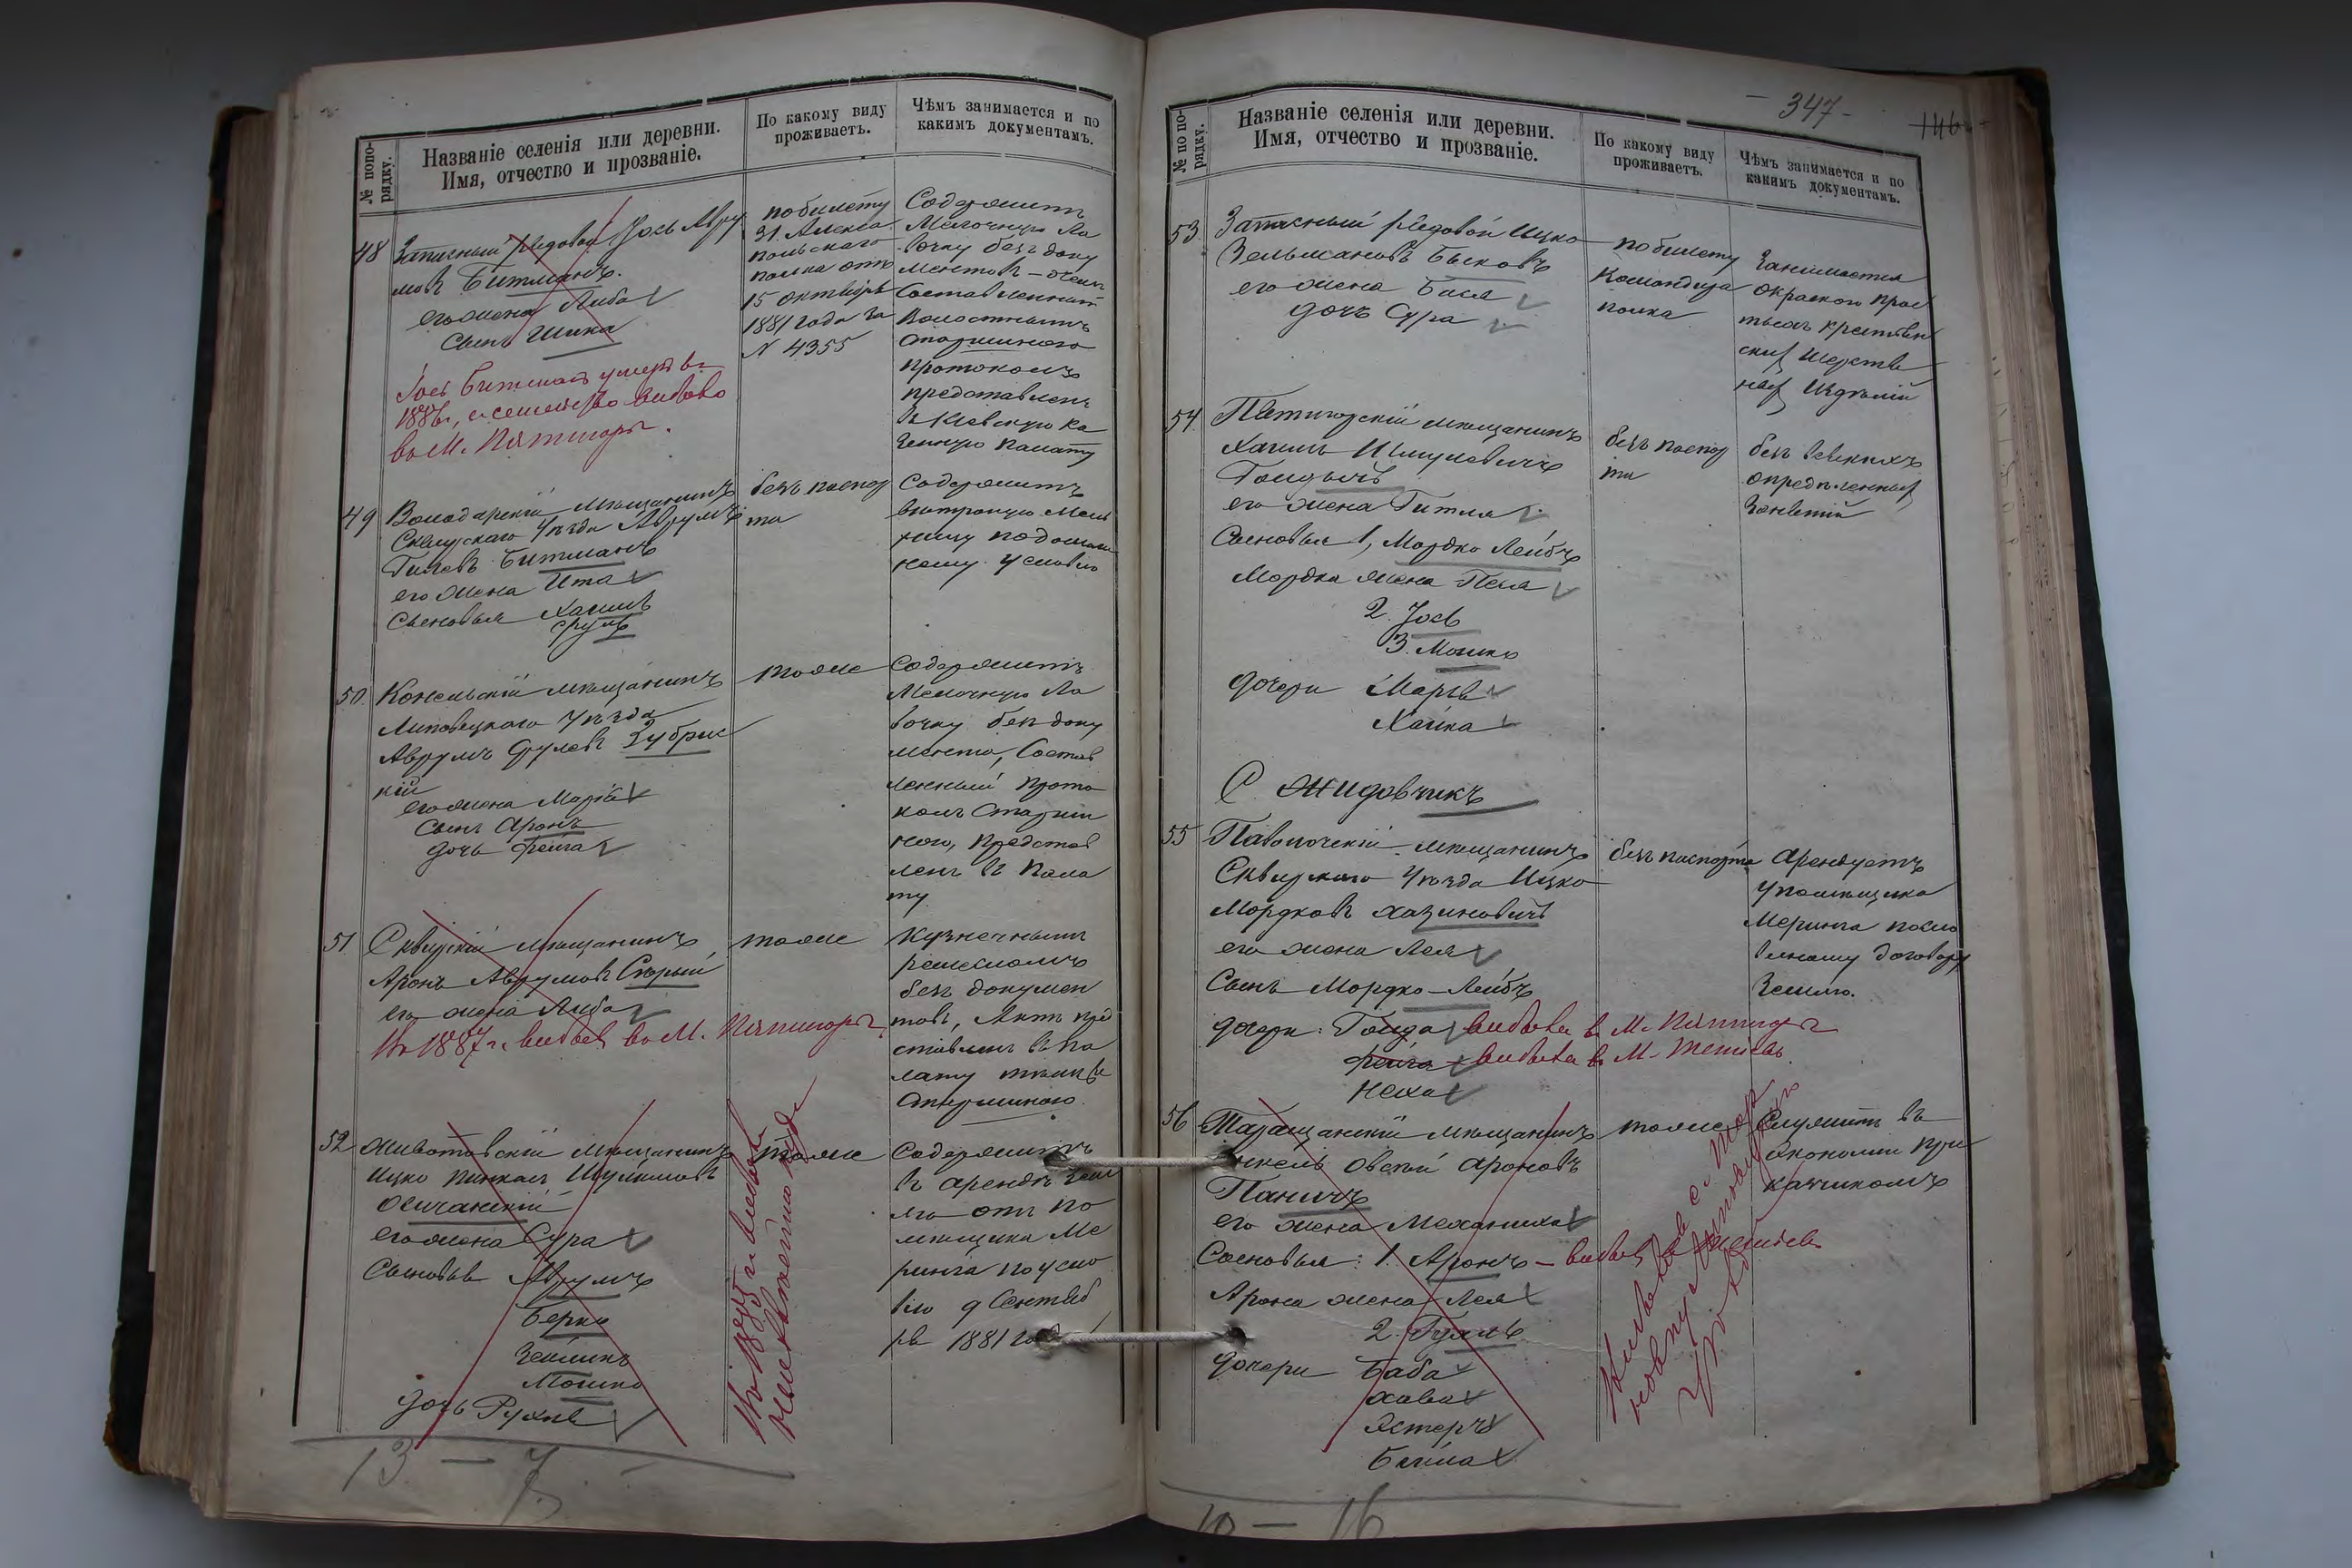 № по по-
рядку.
Названіе селенія или деревни.
Имя, отчество и прозваніе.
По какому виду
проживаетъ.
Чѣмъ занимается и по
какимъ документамъ.
48
Запасный рядовой Іось Авру
мовъ Битманъ.
его жена Либа
Сынъ Шика
Іось Битманъ умеръ въ
1886г, а семейство выбыло
въ М. Пятигоры.
по билету
31. Алексо
польскаго
полка отъ
15 октября
1881 года за
№ 4355
Содержитъ
Мелочную Ла
вочку безъ доку
ментовъ –
Составленный
Волостнымъ
Старшиною
протоколъ
представленъ
въ Кіевскую Ка
зенную Палату
49
Володарскій мѣщанинъ
Сквирскаго уѣзда Аврумъ
Битманъ
его жена Ита
Сыновья Хаимъ
Сруль
безъ паспор
та
Содержитъ
вѣтряную Мель
ницу по домаш
нему условію
50
Конельскій мѣщанинъ
Липовецкаго уѣзда
Аврумъ Срулевъ Зубрис
кій
его жена Марія
Сынъ Аронъ
дочь Фейга
тоже
Содержитъ
Мелочную Ла
вочку безъ доку
мента, Состав
ленный прото
колъ Старши
ною, представ
ленъ въ Пала
ту
51
Сквирскій мѣщанинъ
Аронъ Аврумовъ Скорый
его жена Либа
Въ 1887 г. выбылъ въ М. Пятигоры
тоже
Кузнечнымъ
ремесломъ
безъ докумен
товъ, Актъ пред
ставленъ въ Па
лату
Старшиною
52
Животовскій мѣщанинъ
Ицко Пинхасъ Шулимовъ
Осичанскій
его жена Сура
Сыновья Аврумъ
Берко
Зейликъ
Мошко
дочь Рухля
тоже
Содержитъ
въ арендѣ зем
лю отъ по
мѣщика Ме
ринга по усло
вію 9 Сентяб
ря 1881 го
13 – 7
– 347 –
146
№ по по-
рядку.
Названіе селенія или деревни.
Имя, отчество и прозваніе.
По какому виду
проживаетъ.
Чѣмъ занимается и по
какимъ документамъ.
53
Запасный рядовой Ицко
Зельмановъ Быковъ
его жена Бася
дочь Сура
по билету
Командира
полка
Занимается
окраскою прос
тыхъ крестьян
скихъ шерстя
ныхъ издѣлій
54
Пятигорскій мѣщанинъ
Хаимъ Шмулевичъ
его жена Гитля
Сыновья 1, Мордко Лейбъ
Мордка жена Песя
2. Іось
3. Мошко
дочери Марья
Хайка
безъ паспор
та
безъ всякихъ
опредѣленныхъ
Занятій
С Жидовчикъ
55
Паволочскій мѣщанинъ
Сквирскаго уѣзда Ицко
Мордковъ Хазиновичъ
его жена Лея
Сынъ Мордко-Лейбъ
дочери: Голда выбыла въ М. Пятигоры
Фейга выбыла въ М. Тетіевъ
Неха
безъ паспорта
Арендуетъ
у помѣщика
Меринга по сло
весному договору
Землю.
56
Таращанскій мѣщанинъ
Янкель Овсѣй Ароновъ
Паничъ
его жена Механиха
Сыновья: 1. Аронъ – выбылъ въ Тетіевъ
Арона жена Лея
2.
дочери Баба
Хава
Эстеръ
Бейла
тоже
Служитъ въ
Экономіи при
кащикомъ
10 – 16